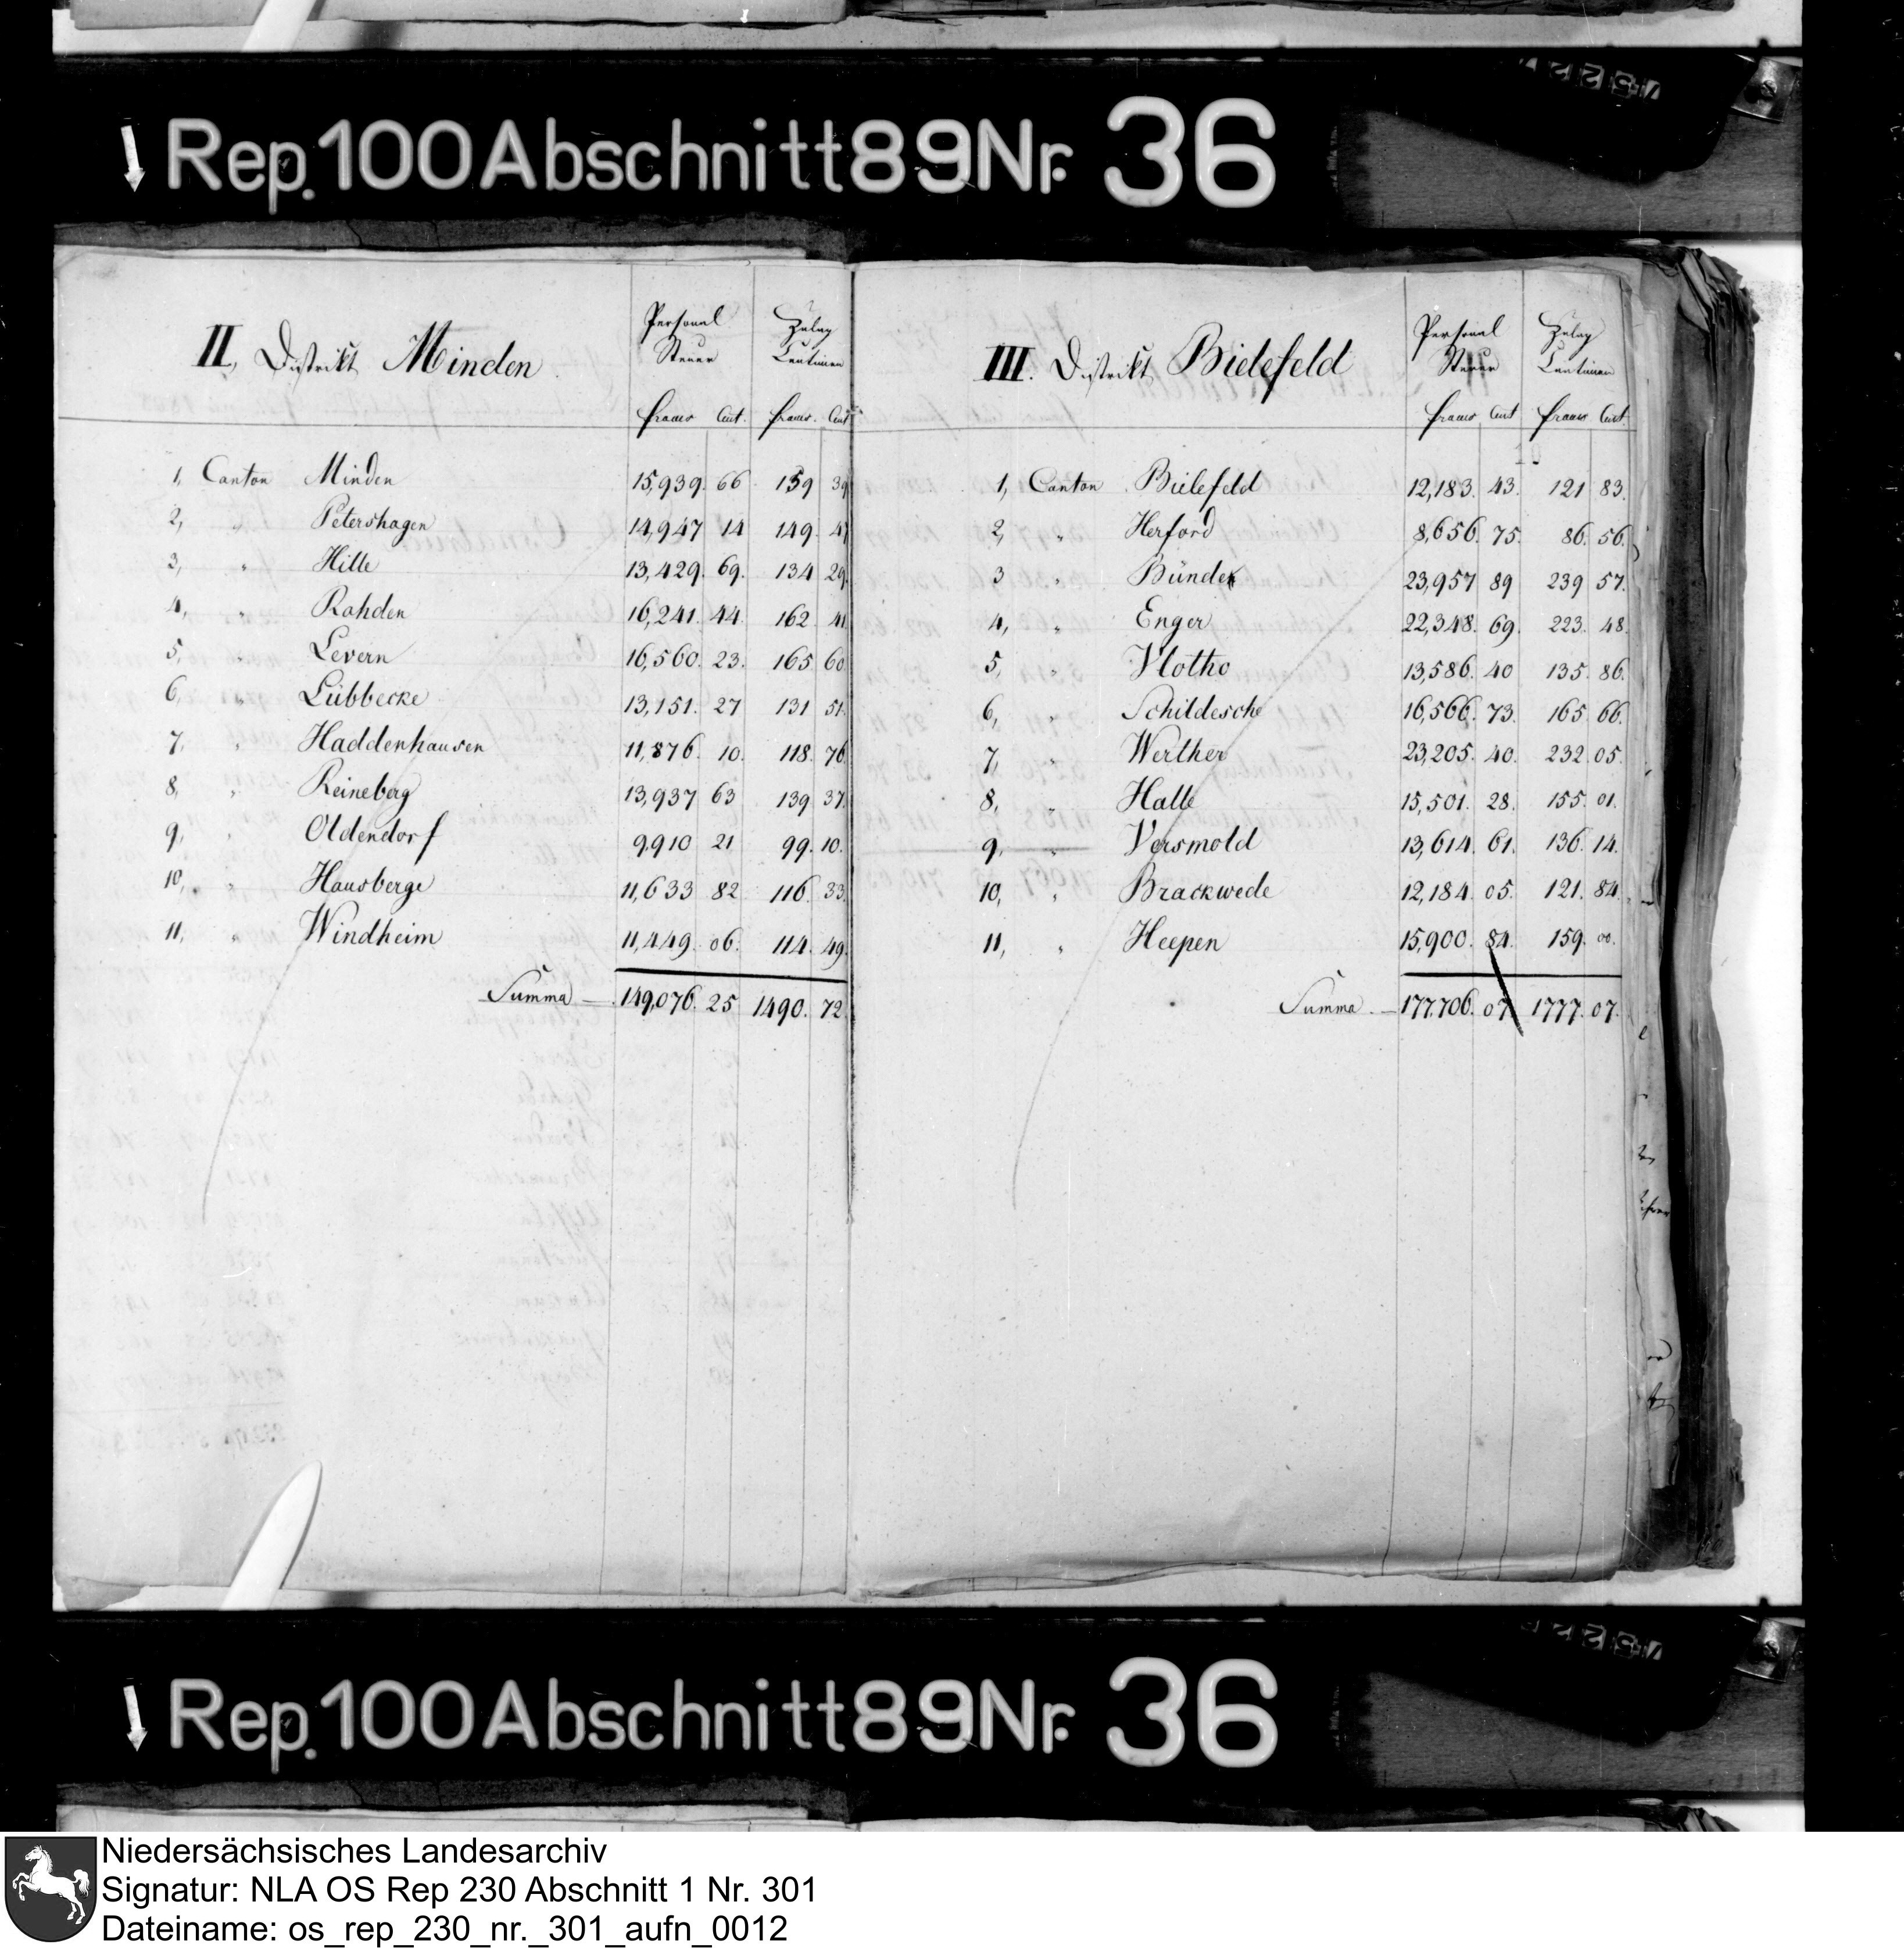 Rep. 100 Abschnitt 89 Nr. 36
II, Distrikt Minden
Personal Steuer
Zulag Centimen
francs Cent. francs. Cent
1, Canton Minden 15,939. 66 159 39
2, " Petershagen 14,947 14 149. 47
3, " Hille 13,429. 69. 134 29.
4, " Rahden 16,241. 44. 162 41
5, " Levern 16,560. 23. 165 60
6, " Lübbecke 13,151. 27 131 51.
7, " Haddenhausen 11,876. 10. 118. 76
8, " Reineberg 13,937 63 139 37.
9, " Oldendorf 9910 21 99. 10.
10, " Hausberge 11,633 82 116. 33.
11, " Windheim 11,449. 06. 114. 49.
Summa 149,076. 25 1490. 72.
III. Distrikt Bielefeld
Personal Steuer
Zulag Centimen
francs Cent francs Cent.
1, Canton Bielefeld 12,183. 43. 121 83.
2, " Herford 8,656. 75. 86. 56.
3 " Bünde 23,957 89 239 57.
4, " Enger 22,348. 69. 223. 48.
5, " Vlotho 13,586. 40 135. 86.
6, " Schildesche 16,566. 73. 165. 66.
7, " Werther 23,205. 40. 232. 05.
8, " Halle 15,501. 28. 155. 01.
9, " Versmold 13,614. 61. 136. 14.
10, " Brackwede 12,184. 05. 121. 84.
11, " Heepen 15,900. 84. 159. 00.
Summa. 177,706. 07 1777. 07.
Rep. 100 Abschnitt 89 Nr. 36
Niedersächsisches Landesarchiv
Signatur: NLA OS Rep 230 Abschnitt 1 Nr. 301
Dateiname: os_rep_230_nr._301_aufn_0012